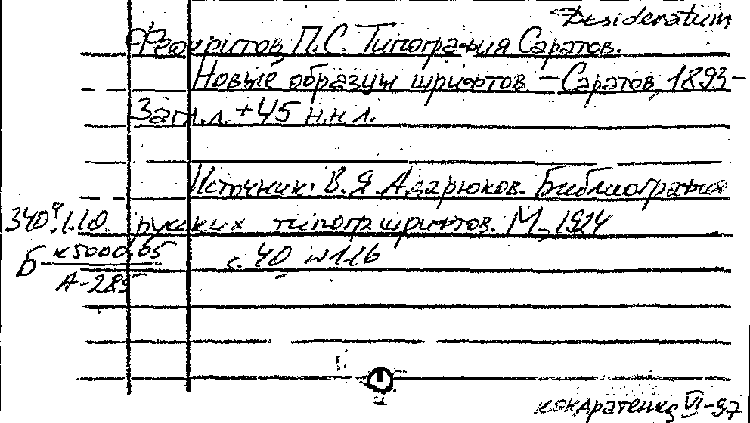 Desideratum
Феокритов, П.С. Типография Саратов.
Новые образцы шрифтов – Саратов, 1893 –
Загл.л. + 45 н.н л.
Источник: В.Я Адарюков. Библиография
русских типогр шрифтов. М., 1924
Б к5000,65
А-285
с. 40 №116
VI-97